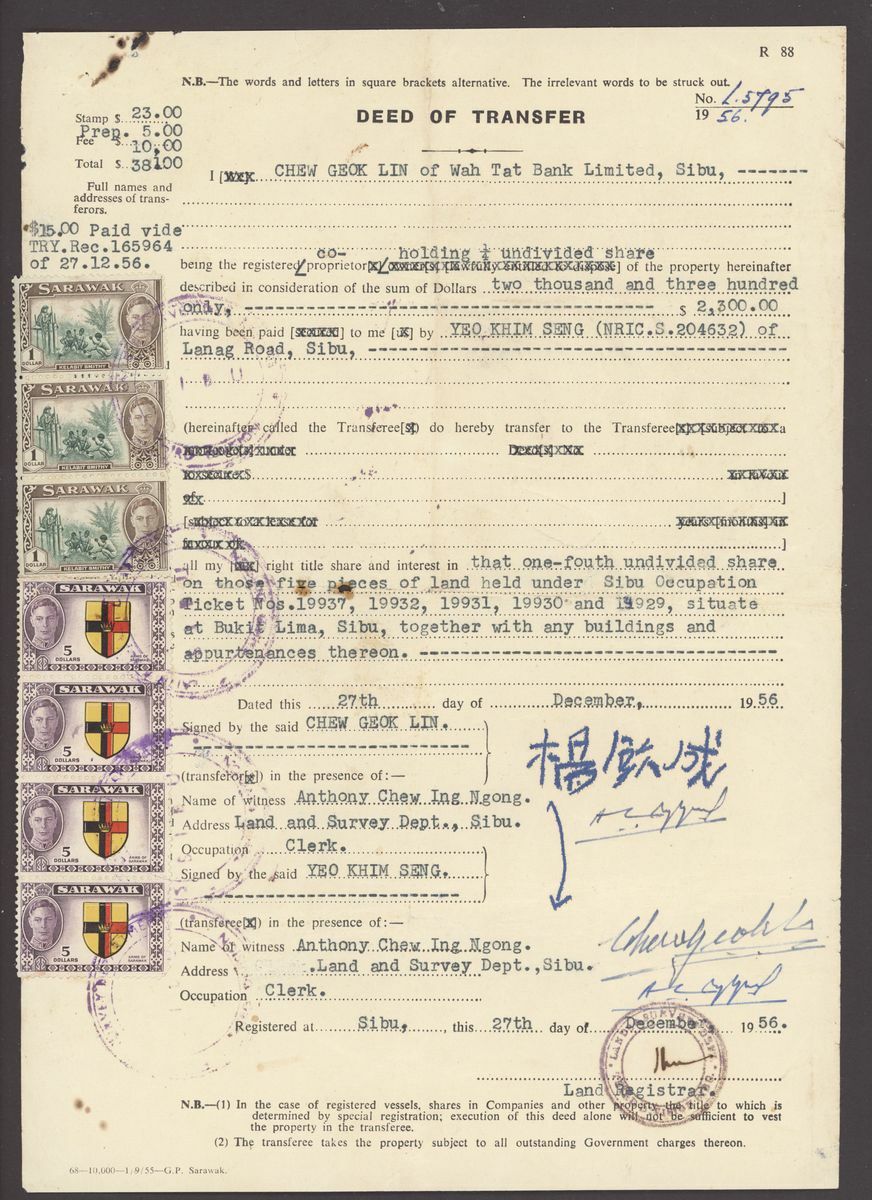 R 88
N.B.—The words and letters in square brackets alternative. The irrelevant words to be struck out.
No. L.5795
1956.
DEED OF TRANSFER
Stamp $ 23.00
Prep. 5.00
Fee $ 10,00
Total $ 38100
Full names and
addresses of trans-
ferors.
I [ CHEW GEOK LIN of Wah Tat Bank Limited, Sibu, -------
$15.00 Paid vide
TRY.Rec.165964
of 27.12.56.
co- holding ¼ undivided share
being the registered/proprietor ] of the property hereinafter
described in consideration of the sum of Dollars two thousand and three hundred
only, ---------------------------------- $ 2,300.00
having been paid [ ] to me [ ] by YEO KHIM SENG (NRIC.S.204632) of
Lanag Road, Sibu, ----------------------------------
(hereinafter called the Transferee[ ] do hereby transfer to the Transferee
all my [ ] right title share and interest in that one-fouth undivided share
on those five pieces of land held under Sibu Occupation
Ticket Nos.19937, 19932, 19931, 19930 and 19929, situate
at Bukit Lima, Sibu, together with any buildings and
appurtenances thereon. ----------------------------------
Dated this 27th day of December, 1956
Signed by the said CHEW GEOK LIN.
(transferor[ ]) in the presence of:—
Name of witness Anthony Chew Ing Ngong.
Address Land and Survey Dept., Sibu.
Occupation Clerk.
Signed by the said YEO KHIM SENG.
(transferee[ ]) in the presence of:—
Name of witness Anthony Chew Ing Ngong.
Address .Land and Survey Dept.,Sibu.
Occupation Clerk.
Chew Geok Lin
Registered at Sibu, this 27th day of December, 1956.
Land Registrar.
N.B.—(1) In the case of registered vessels, shares in Companies and other property the title to which is
determined by special registration; execution of this deed alone will not be sufficient to vest
the property in the transferee.
(2) The transferee takes the property subject to all outstanding Government charges thereon.
68—10,000—1/9/55—G.P. Sarawak.
SARAWAK
1
DOLLAR
KELABIT SMITHY
SARAWAK
1
DOLLAR
KELABIT SMITHY
SARAWAK
1
DOLLAR
KELABIT SMITHY
SARAWAK
5
DOLLARS
ARMS OF
SARAWAK
SARAWAK
5
DOLLARS
ARMS OF
SARAWAK
SARAWAK
5
DOLLARS
ARMS OF
SARAWAK
SARAWAK
5
DOLLARS
ARMS OF
SARAWAK